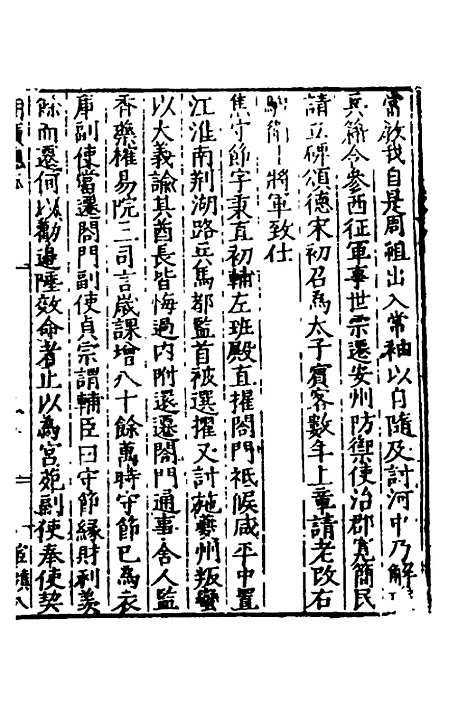 常敬我自是周祖出入常袖以自隨及討河中乃解
兵籍令參西征軍事世宗遷安州防禦使治郡寬簡民
請立碑頌德宋初召爲太子賓客數年上章請老改右
將軍致仕
焦守節字秉直初輔左班殿直擢閤門祗候咸平中置
江淮南荆湖路兵馬都監首被選擢又討施夔州叛蠻
以大義諭其酋長皆悔過内附還遷閤門通事舍人監
香藥榷易院三司言歲課增八十餘萬時守節已爲衣
庫副使當還閤門副使貞宗謂輔臣曰守節緣財利羨
餘而遷何以勸邊陲效命者止以爲宮苑副使奉使契